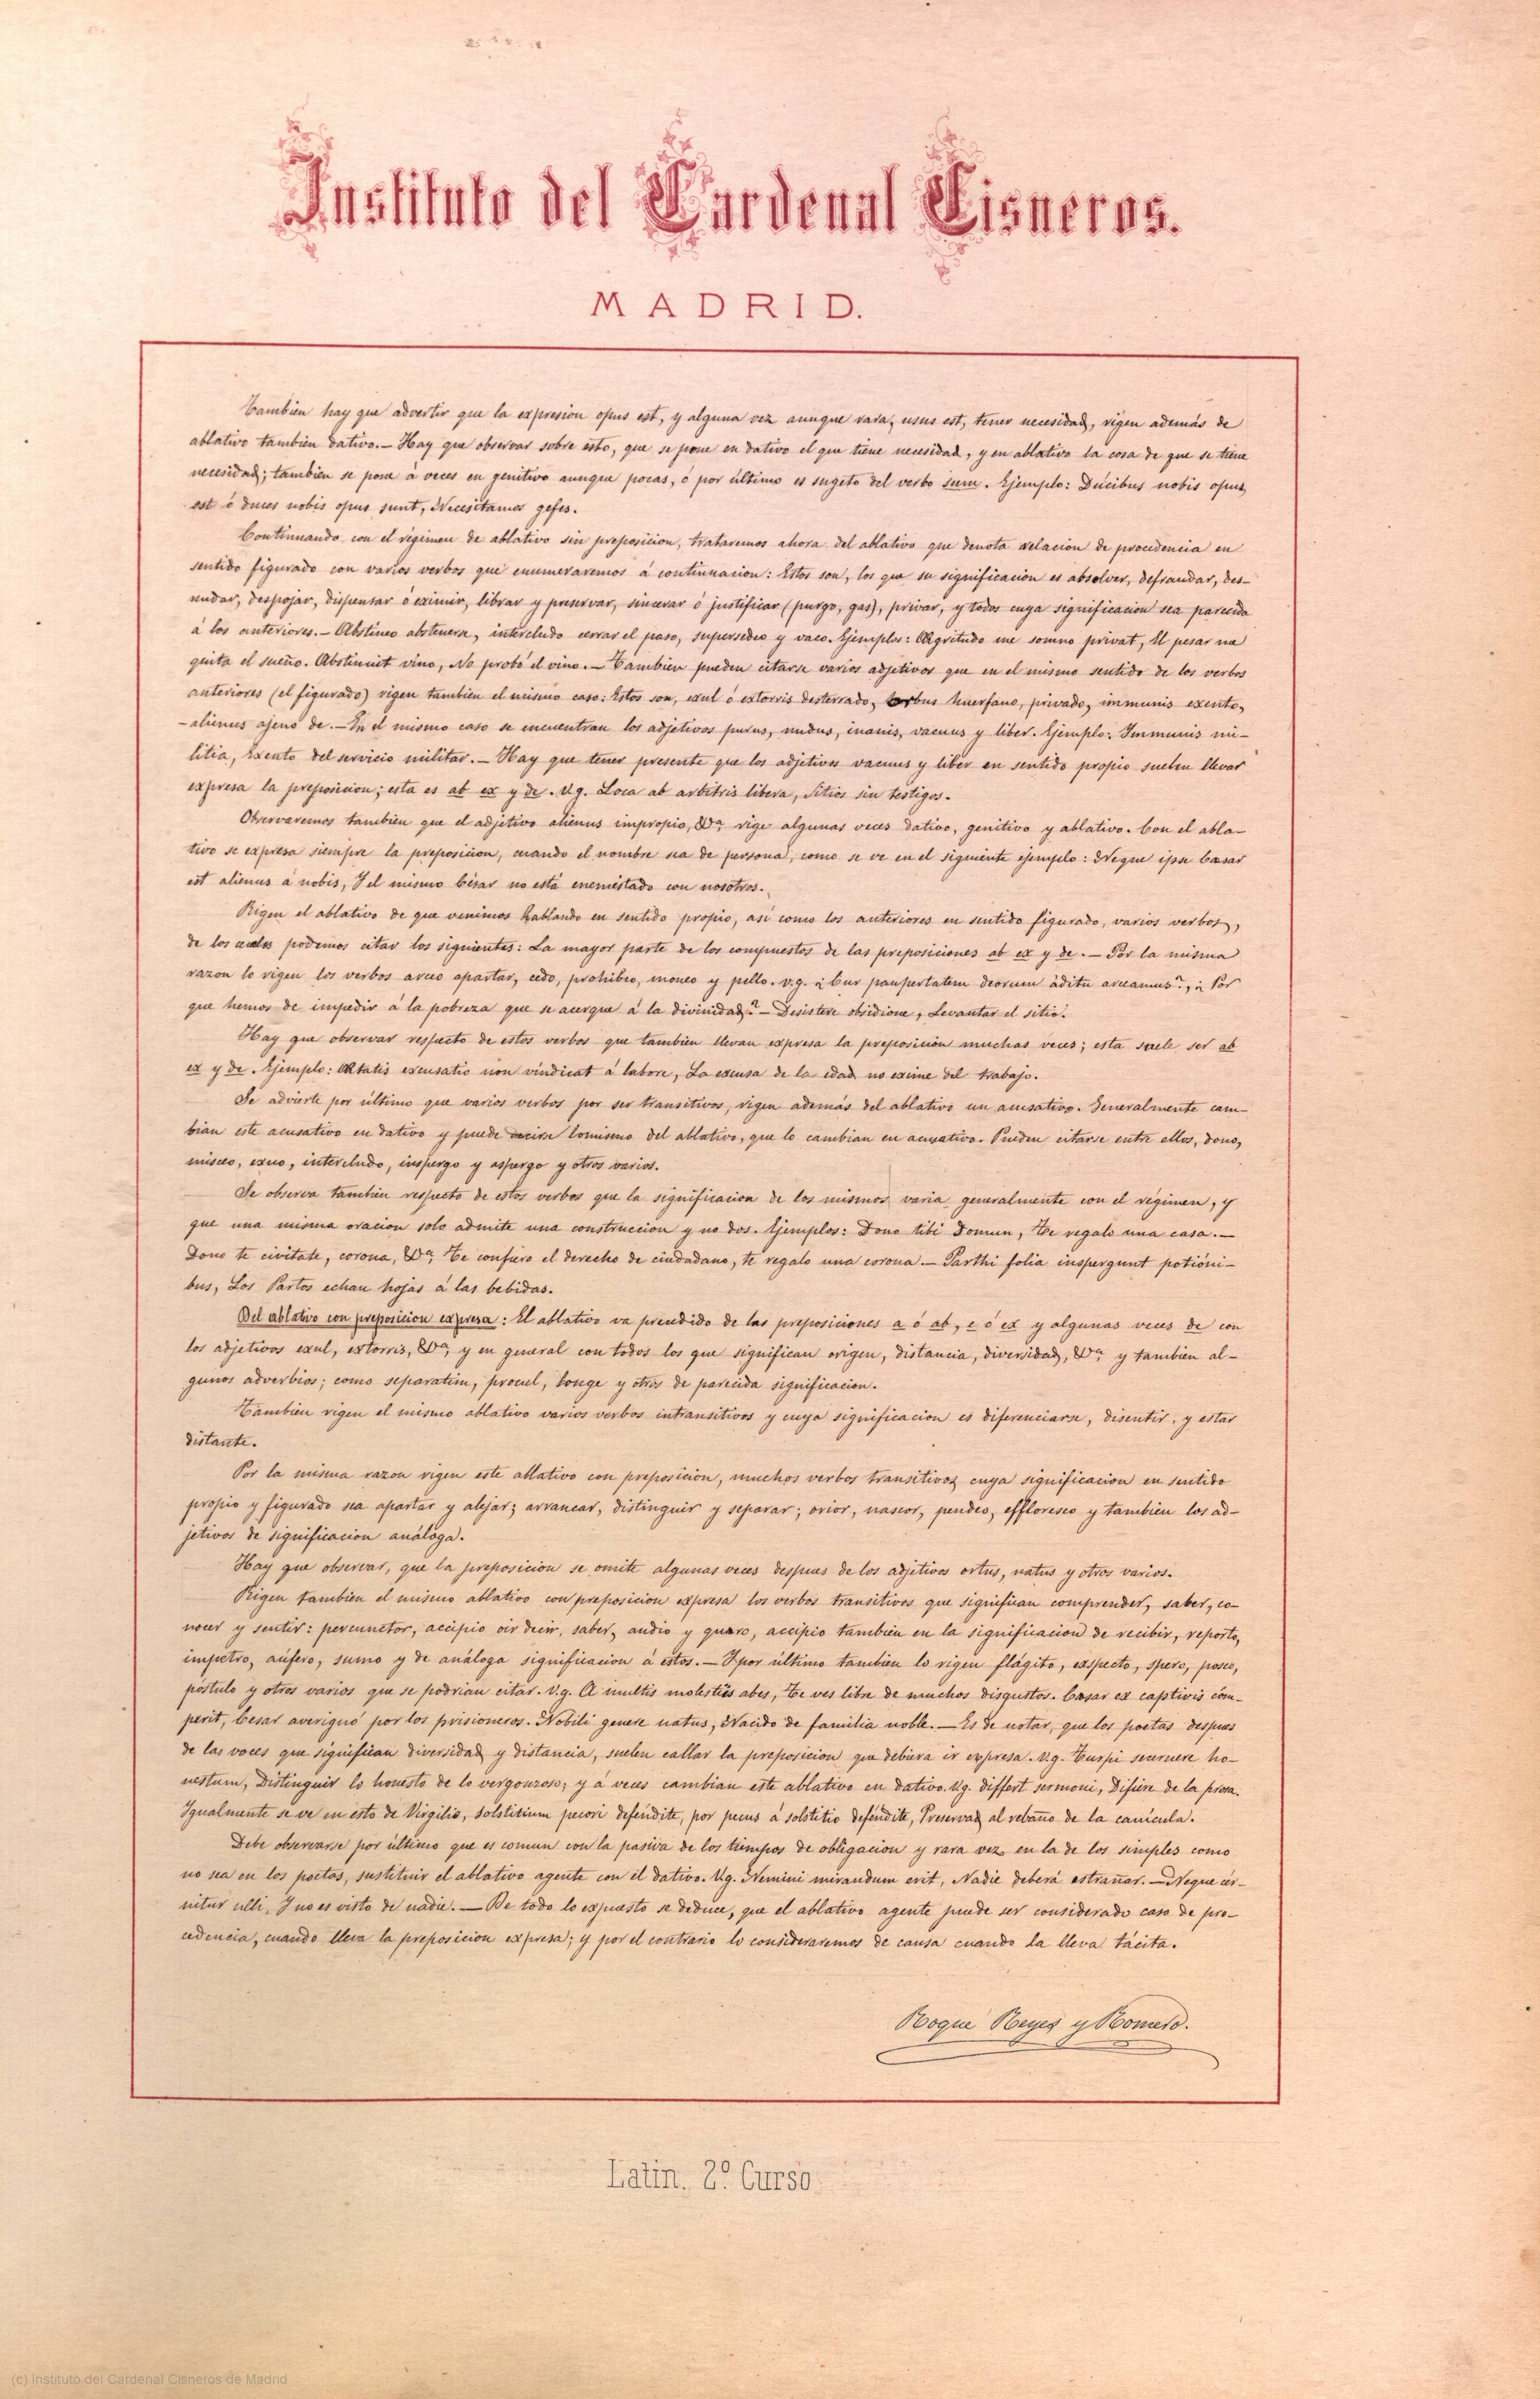 Instituto del Cardenal Cisneros.
MADRID.
Tambien hay que advertir que la expresion opus est, y alguna vez aunque rara, usus est, tener necesidad, rigen además de
ablativo tambien dativo.— Hay que observar sobre esto, que se pone en dativo el que tiene necesidad, y en ablativo la cosa de que se tiene
necesidad; tambien se pone á veces en genitivo aunque pocas, ó por último es sugeto del verbo sum. Ejemplo: Dúcibus nobis opus
est ó duces nobis opus sunt, Necesitamos gefes.
Continuando con el régimen de ablativo sin preposicion, trataremos ahora del ablativo que denota relacion de procedencia en
sentido figurado con varios verbos que enumeraremos á continuacion: Estos son, los que su significacion es absolver, defraudar, des-
nudar, despojar, dispensar ó eximir, librar y preservar, sincerar ó justificar (purgo, gas), privar, y todos cuya significacion sea parecida
á los anteriores.— Abstineo abstenerse, intercludo cerrar el paso, supersedeo y vaco. Ejemplos: Ægritudo me somno privat, El pesar me
quita el sueño. Abstinuit vino, No probó el vino.— Tambien pueden citarse varios adjetivos que en el mismo sentido de los verbos
anteriores (el figurado) rigen tambien el mismo caso: Estos son, exul ó extorris desterrado, orbus huerfano, privado, immunis exento,
-alienus ageno de.— En el mismo caso se encuentran los adjetivos purus, nudus, inanis, vacuus y liber. Ejemplo: Immunis mi-
litia, Exento del servicio militar.— Hay que tener presente que los adjetivos vacuus y liber en sentido propio suelen llevar
expresa la preposicion; esta es ab ex y de. V.g. Loca ab arbitris libera, Sitios sin testigos.
Observaremos tambien que el adjetivo alienus impropio, &ª, rige algunas veces dativo, genitivo y ablativo. Con el abla-
tivo se expresa siempre la preposicion, cuando el nombre sea de persona, como se ve en el siguiente ejemplo: Neque ipse Cæsar
est alienus á nobis, Y el mismo César no está enemistado con nosotros.
Rigen el ablativo de que venimos hablando en sentido propio, así como los anteriores en sentido figurado, varios verbos,
de los cuales podemos citar los siguientes: La mayor parte de los compuestos de las preposiciones ab ex y de.— Por la misma
razon lo rigen los verbos arceo apartar, cedo, prohibeo, moneo y pello. v.g. ¿Cur paupertatem deorum áditu arceamus?, ¿Por
que hemos de impedir á la pobreza que se acerque á la divinidad?— Desistere obsidione, Levantar el sitio.
Hay que observar respecto de estos verbos que tambien llevan expresa la preposicion muchas veces; esta suele ser ab
ex y de. Ejemplo: Ætatis excusatio non vindicat á labore, La excusa de la edad no exime del trabajo.
Se advierte por último que varios verbos por ser transitivos, rigen además del ablativo un acusativo. Generalmente cam-
bian este acusativo en dativo y puede decirse lomismo del ablativo, que lo cambian en acusativo. Pueden citarse entre ellos, dono,
misceo, exuo, intercludo, inspergo y aspergo y otros varios.
Se observa tambien respecto de estos verbos que la significacion de los mismos varia generalmente con el régimen, y
que una misma oracion solo admite una construccion y no dos. Ejemplos: Dono tibi domun, Te regalo una casa.—
Dono te civitate, corona, &ª, Te confiero el derecho de ciudadano, te regalo una corona.— Parthi folia inspergunt potióni-
bus, Los Partos echan hojas á las bebidas.
Del ablativo con preposicion expresa: El ablativo va precedido de las preposiciones a ó ab, e ó ex y algunas veces de con
los adjetivos exul, extorris, &ª, y en general con todos los que significan origen, distancia, diversidad, &ª, y tambien al-
gunos adverbios; como separatim, procul, longe y otros de parecida significacion.
Tambien rigen el mismo ablativo varios verbos intransitivos y cuya significacion es diferenciarse, disentir, y estar
distante.
Por la misma razon rigen este ablativo con preposicion, muchos verbos transitivos cuya significacion en sentido
propio y figurado sea apartar y alejar; arrancar, distinguir y separar; orior, nascor, pendeo, effloresco y tambien los ad-
jetivos de significacion análoga.
Hay que observar, que la preposicion se omite algunas veces despues de los adjetivos ortus, natus y otros varios.
Rigen tambien el mismo ablativo con preposicion expresa los verbos transitivos que significan comprender, saber, co-
nocer y sentir: percunctor, accipio oir decir, saber, audio y quæro, accipio tambien en la significacion de recibir, reporto,
impetro, aúfero, sumo y de análoga significacion á estos.— Y por último tambien lo rigen flágito, exspecto, spero, posco,
póstulo y otros varios que se podrian citar. V.g. A multis molestiis abes, Te ves libre de muchos disgustos. Cæsar ex captivis cóm-
perit, Cesar averiguó por los prisioneros. Nobili genere natus, Nacido de familia noble.— Es de notar, que los poetas despues
de las voces que significan diversidad y distancia, suelen callar la preposicion que debiera ir expresa. V.g. Turpi secernere ho-
nestum, Distinguir lo honesto de lo vergonzoso; y á veces cambian este ablativo en dativo. V.g. differt sermoni, Difiere de la prosa.
Igualmente se ve en esto de Virgilio, solstitium pecori deféndite, por pecus á solstitio deféndite, Preservad al rebaño de la canícula.
Debe observarse por último que es comun con la pasiva de los tiempos de obligacion y rara vez en la de los simples como
no sea en los poetas, sustituir el ablativo agente con el dativo. V.g. Nemini mirandum erit, Nadie deberá estrañar.— Neque cér-
nitur ulli, Y no es visto de nadie.— De todo lo expuesto se deduce, que el ablativo agente puede ser considerado caso de pro-
cedencia, cuando lleva la preposicion expresa; y por el contrario lo consideraremos de causa cuando la lleva tácita.
Roque Reyes y Romero.
Latin. 2º Curso
(c) Instituto del Cardenal Cisneros de Madrid